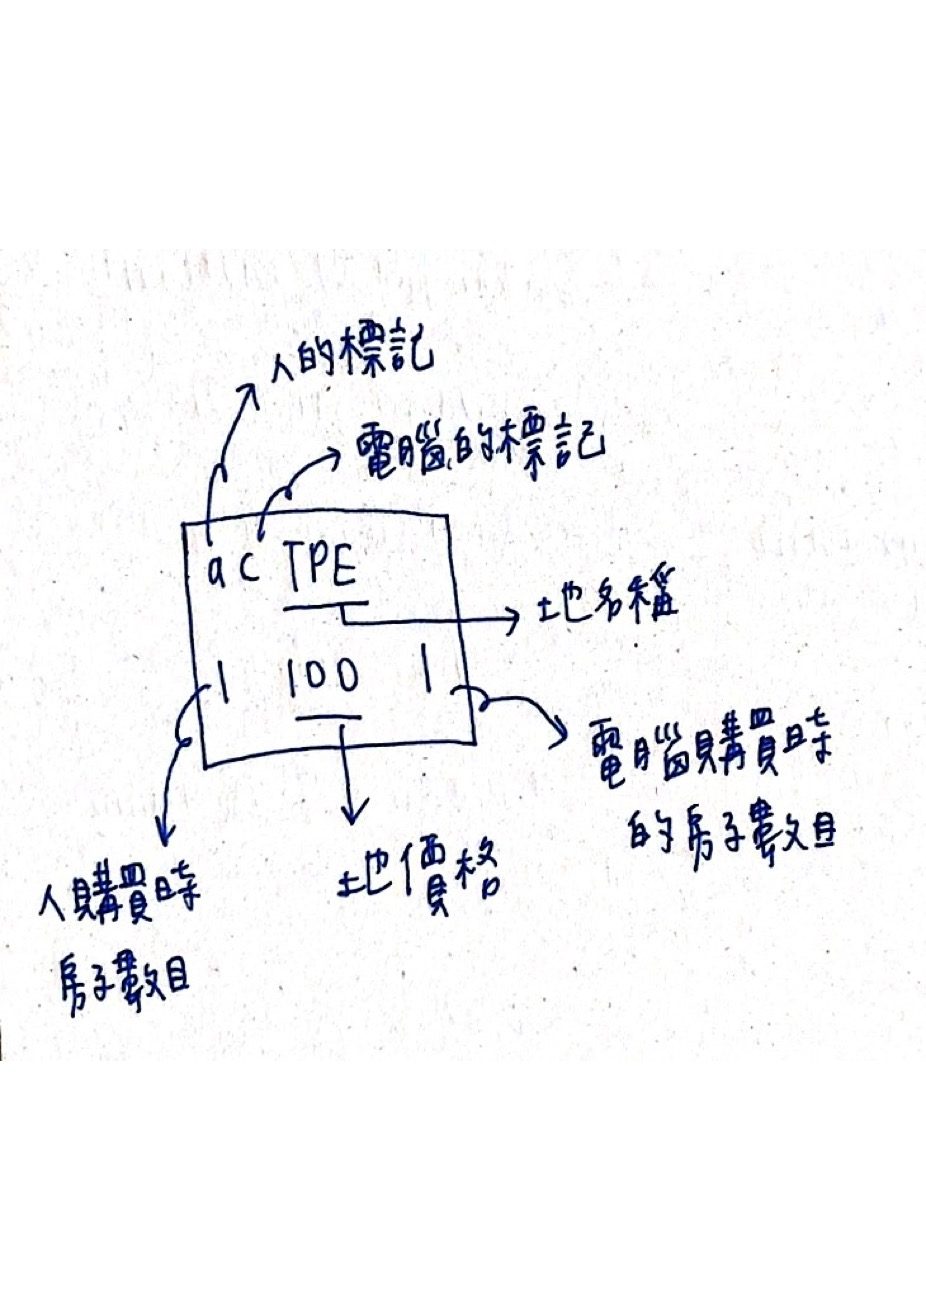 人的標記
電腦的標記
a c TPE
土地名稱
1 100 1
電腦購買時
的房子數目
土地價格
人購買時
房子數目